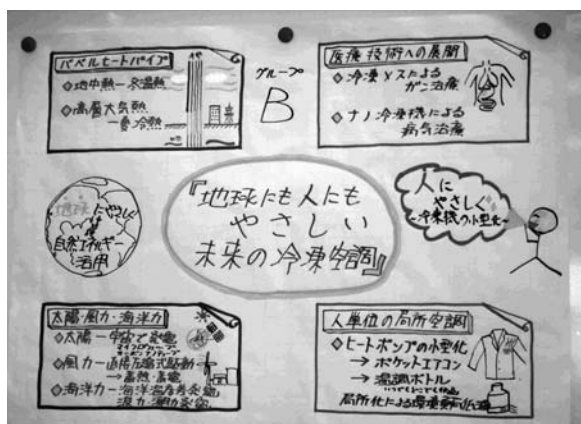 バベルヒートパイプ
◇地中熱→冬温熱
◇高層大気熱
→夏冷熱
グループ
B
医療技術への展開
◇冷凍メスによる
ガン治療
◇ナノ冷凍機による
病気治療
地球にやさしく
自然エネルギー
活用
『地球にも人にも
やさしい
未来の冷凍空調』
人に
やさしく
~冷凍機の小型化~
太陽・風力・海洋力
◇太陽→宇宙で発電
◇風力→直接圧縮式駆動
→蓄熱・蓄電
◇海洋力→海洋温度差発電
波力・潮力発電
人単位の局所空調
◇ヒートポンプの小型化
→ポケットエアコン
→温調ボトル
局所化による環境負荷低減